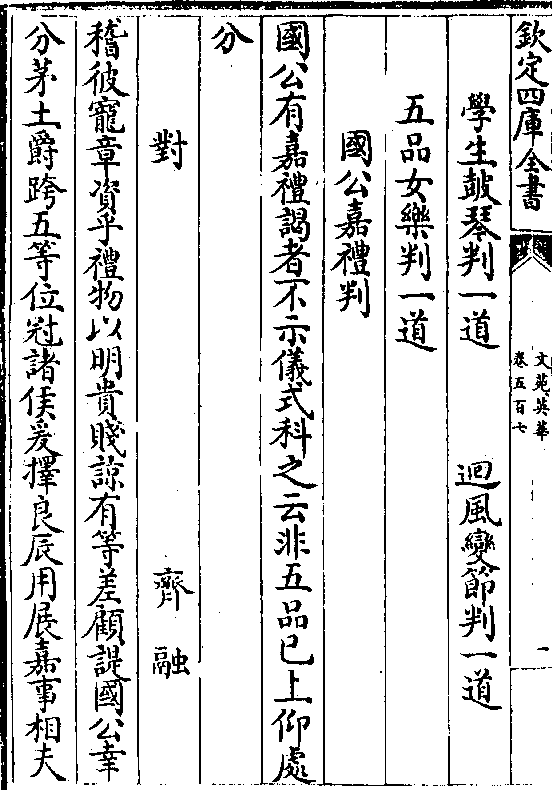 欽定四庫全書
文苑英華
卷五百七
一
學生鼓琴判一道　迴風變節判一道
五品女樂判一道
國公嘉禮判
國公有嘉禮謁者不示儀式科之云非五品已上仰處
分
對　齊融
稽彼寵章資乎禮物以明貴賤諒有等差顧諟國公幸
分茅土爵跨五等位冠諸侯爰擇良辰用展嘉事相夫